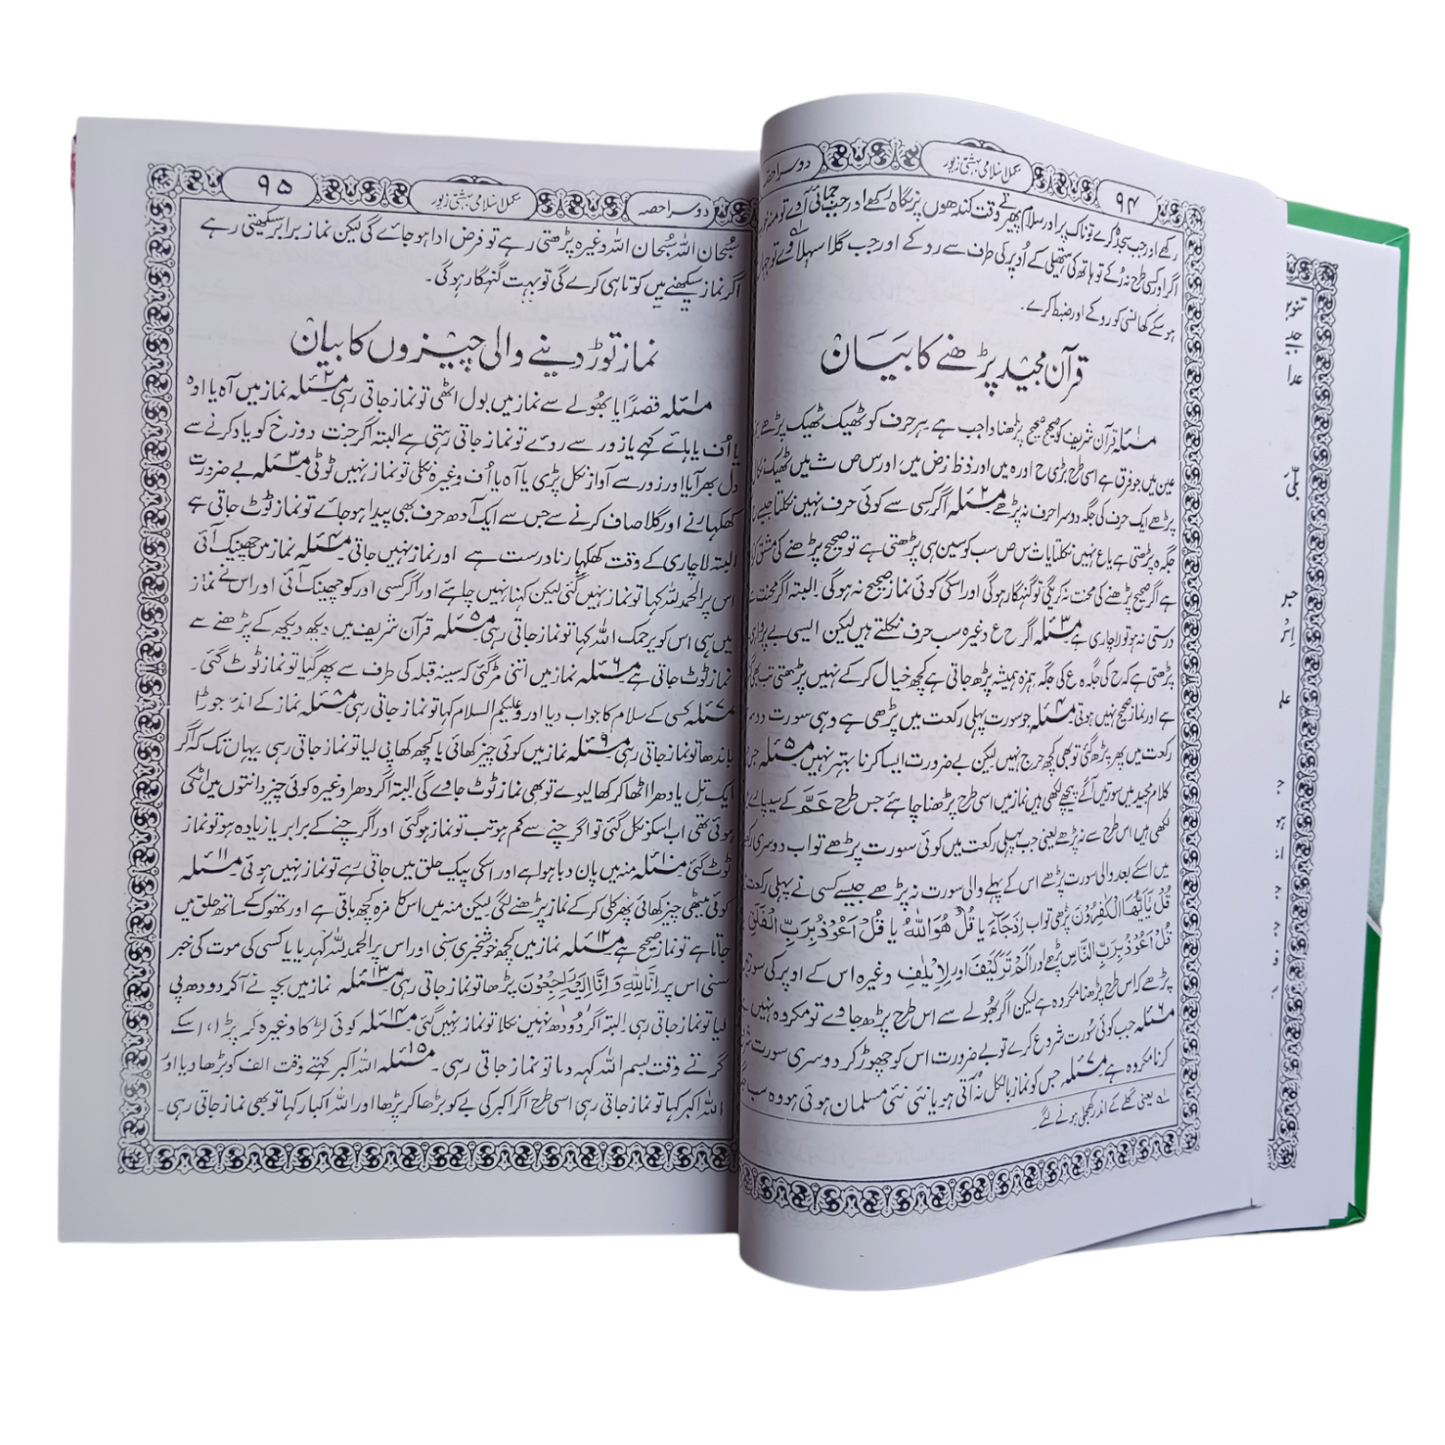 ۹۴
مکمل اسلامی بہشتی زیور
دوسرا حصہ
رکھے اور جب سجدہ کرے تو ناک پر اور سلام پھیرتے وقت کندھوں پر نگاہ رکھے اور جب جمائی آوے تو منہ خوب
اگر اور کسی طرح نہ رُکے تو ہاتھ کی ہتھیلی کے اُوپر کی طرف سے روکے اور جب گلا سہلاوے تو جہاں
ہو سکے کھانسی کو روکے اور ضبط کرے۔
قرآن مجید پڑھنے کا بیان
مسئلہ۱ قرآن شریف کو صحیح صحیح پڑھنا واجب ہے ہر حرف کو ٹھیک ٹھیک پڑھے
عین میں جو فرق ہے اسی طرح بڑی ح اور ہ میں اور ذ ظ ز ض میں اور س ص ث میں ٹھیک نکال
پڑھے ایک حرف کی جگہ دوسرا حرف نہ پڑھے مسئلہ۲ اگر کسی سے کوئی حرف نہیں نکلتا جیسے
جگہ ہ پڑھتی ہے یا ع نہیں نکلتا یا ث س ص سب کو سین ہی پڑھتی ہے تو صحیح پڑھنے کی مشق
ہے اگر صحیح پڑھنے کی محنت نہ کریگی تو گنہگار ہوگی اور اسکی کوئی نماز صحیح نہ ہوگی البتہ اگر محنت سے
درستی نہ ہو تو لاچاری ہے مسئلہ۳ اگر ح ع وغیرہ سب حرف نکلتے ہیں لیکن ایسی بے پروائی
پڑھتی ہے کہ ح کی جگہ ہ ع کی جگہ ہمزہ ہمیشہ پڑھ جاتی ہے کچھ خیال کر کے نہیں پڑھتی تب بھی
ہے اور نماز صحیح نہیں ہوتی مسئلہ۴ جو سورت پہلی رکعت میں پڑھی ہے وہی سورت
رکعت میں پھر پڑھ گئی تو بھی کچھ حرج نہیں لیکن بے ضرورت ایسا کرنا بہتر نہیں مسئلہ۵ جس
کلام مجید میں سورتیں آگے پیچھے لکھی ہیں نماز میں اسی طرح پڑھنا چاہئے جس طرح عَمَّ کے سیپارے
لکھی ہیں اس طرح سے نہ پڑھے یعنی جب پہلی رکعت میں کوئی سورت پڑھے تو اب دوسری
میں اسکے بعد والی سورت پڑھے اس کے پہلے والی سورت نہ پڑھے جیسے کسی نے پہلی رکعت
قُلْ یٰاَیُّهَا الْکٰفِرُوْنَ پڑھی تو اب اِذَا جَآءَ یا قُلْ هُوَ اللّٰهُ یا قُلْ اَعُوْذُ بِرَبِّ الْفَلَقِ
قُلْ اَعُوْذُ بِرَبِّ النَّاسِ پڑھے اور اَلَمْ تَرَ کَیْفَ اور لِاِیْلٰفِ وغیرہ اس کے اوپر کی
پڑھے کہ اس طرح پڑھنا مکروہ ہے لیکن اگر بھُولے سے اس طرح پڑھ جاوے تو مکروہ نہیں ہے
مسئلہ۶ جب کوئی سُورت شروع کرے تو بے ضرورت اس کو چھوڑ کر دوسری سورت
کرنا مکروہ ہے مسئلہ۷ جس کو نماز بالکل نہ آتی ہو یا نئی نئی مسلمان ہوئی ہو وہ سب
لہ یعنی گلے کے اندر کھجلی ہونے لگے۔
۹۵
مکمل اسلامی بہشتی زیور
دوسرا حصہ
سُبْحَانَ اللّٰهِ سُبْحَانَ اللّٰهِ وغیرہ پڑھتی رہے تو فرض ادا ہو جائے گی لیکن نماز برابر سیکھتی رہے
اگر نماز سیکھنے میں کوتاہی کرے گی تو بہت گنہگار ہوگی۔
نماز توڑ دینے والی چیزوں کا بیان
مسئلہ۱ قصداً یا بھُولے سے نماز میں بول اٹھی تو نماز جاتی رہی مسئلہ۲ نماز میں آہ یا اوہ
یا اُف یا ہائے کہے یا زور سے روئے تو نماز جاتی رہتی ہے البتہ اگر جنت دوزخ کو یاد کرنے سے
دل بھر آیا اور زور سے آواز نکل پڑی یا آہ یا اُف وغیرہ نکلی تو نماز نہیں ٹوٹی مسئلہ۳ بے ضرورت
کھکہارنے اور گلا صاف کرنے سے جس سے ایک آدھ حرف بھی پیدا ہو جائے تو نماز ٹوٹ جاتی ہے
البتہ لاچاری کے وقت کھکہارنا درست ہے اور نماز نہیں جاتی مسئلہ۴ نماز میں چھینک آئی
اس پر الحمد للہ کہا تو نماز نہیں گئی لیکن کہنا نہیں چاہئے اور اگر کسی اور کو چھینک آئی اور اس نے نماز
میں ہی اس کو یرحمک اللہ کہا تو نماز جاتی رہی مسئلہ۵ قرآن شریف میں دیکھ دیکھ کے پڑھنے سے
نماز ٹوٹ جاتی ہے مسئلہ۶ نماز میں اتنی مڑ گئی کہ سینہ قبلہ کی طرف سے پھر گیا تو نماز ٹوٹ گئی۔
مسئلہ۷ کسی کے سلام کا جواب دیا اور وعلیکم السلام کہا تو نماز جاتی رہی مسئلہ۸ نماز کے اندر جوڑا
باندھا تو نماز جاتی رہی مسئلہ۹ نماز میں کوئی چیز کھائی یا کچھ کھا پی لیا تو نماز جاتی رہی یہاں تک کہ اگر
ایک تِل یا دھرا اٹھا کر کھا لیوے تو بھی نماز ٹوٹ جاوے گی البتہ اگر دھرا وغیرہ کوئی چیز دانتوں میں اٹکی
ہوئی تھی اب اسکو نگل گئی تو اگر چنے سے کم ہو تب تو نماز ہوگئی اور اگر چنے کے برابر یا زیادہ ہو تو نماز
ٹوٹ گئی مسئلہ۱۰ منہ میں پان دبا ہوا ہے اور اسکی پیک حلق میں جاتی ہے تو نماز نہیں ہوئی مسئلہ۱۱
کوئی میٹھی چیز کھائی پھر کلی کر کے نماز پڑھنے لگی لیکن منہ میں اس کا مزہ کچھ باقی ہے اور تھوک کے ساتھ حلق میں
جاتا ہے تو نماز صحیح ہے مسئلہ۱۲ نماز میں کچھ خوشخبری سنی اور اس پر الحمد للہ کہدیا یا کسی کی موت کی خبر
سنی اس پر اِنَّا لِلّٰهِ وَ اِنَّا اِلَیْهِ رَاجِعُوْنَ پڑھا تو نماز جاتی رہی مسئلہ۱۳ نماز میں بچہ نے آ کر دودھ پی
لیا تو نماز جاتی رہی البتہ اگر دُودھ نہیں نکلا تو نماز نہیں گئی مسئلہ۱۴ کوئی لڑکا وغیرہ گر پڑا، اسکے
گرتے وقت بسم اللہ کہہ دیا تو نماز جاتی رہی۔ مسئلہ۱۵ اللہ اکبر کہتے وقت الف کو بڑھا دیا اور
اللہ اکبر کہا تو نماز جاتی رہی اسی طرح اگر اکبر کی بے کو بڑھا کر پڑھا اور اللہ اکبار کہا تو بھی نماز جاتی رہی۔